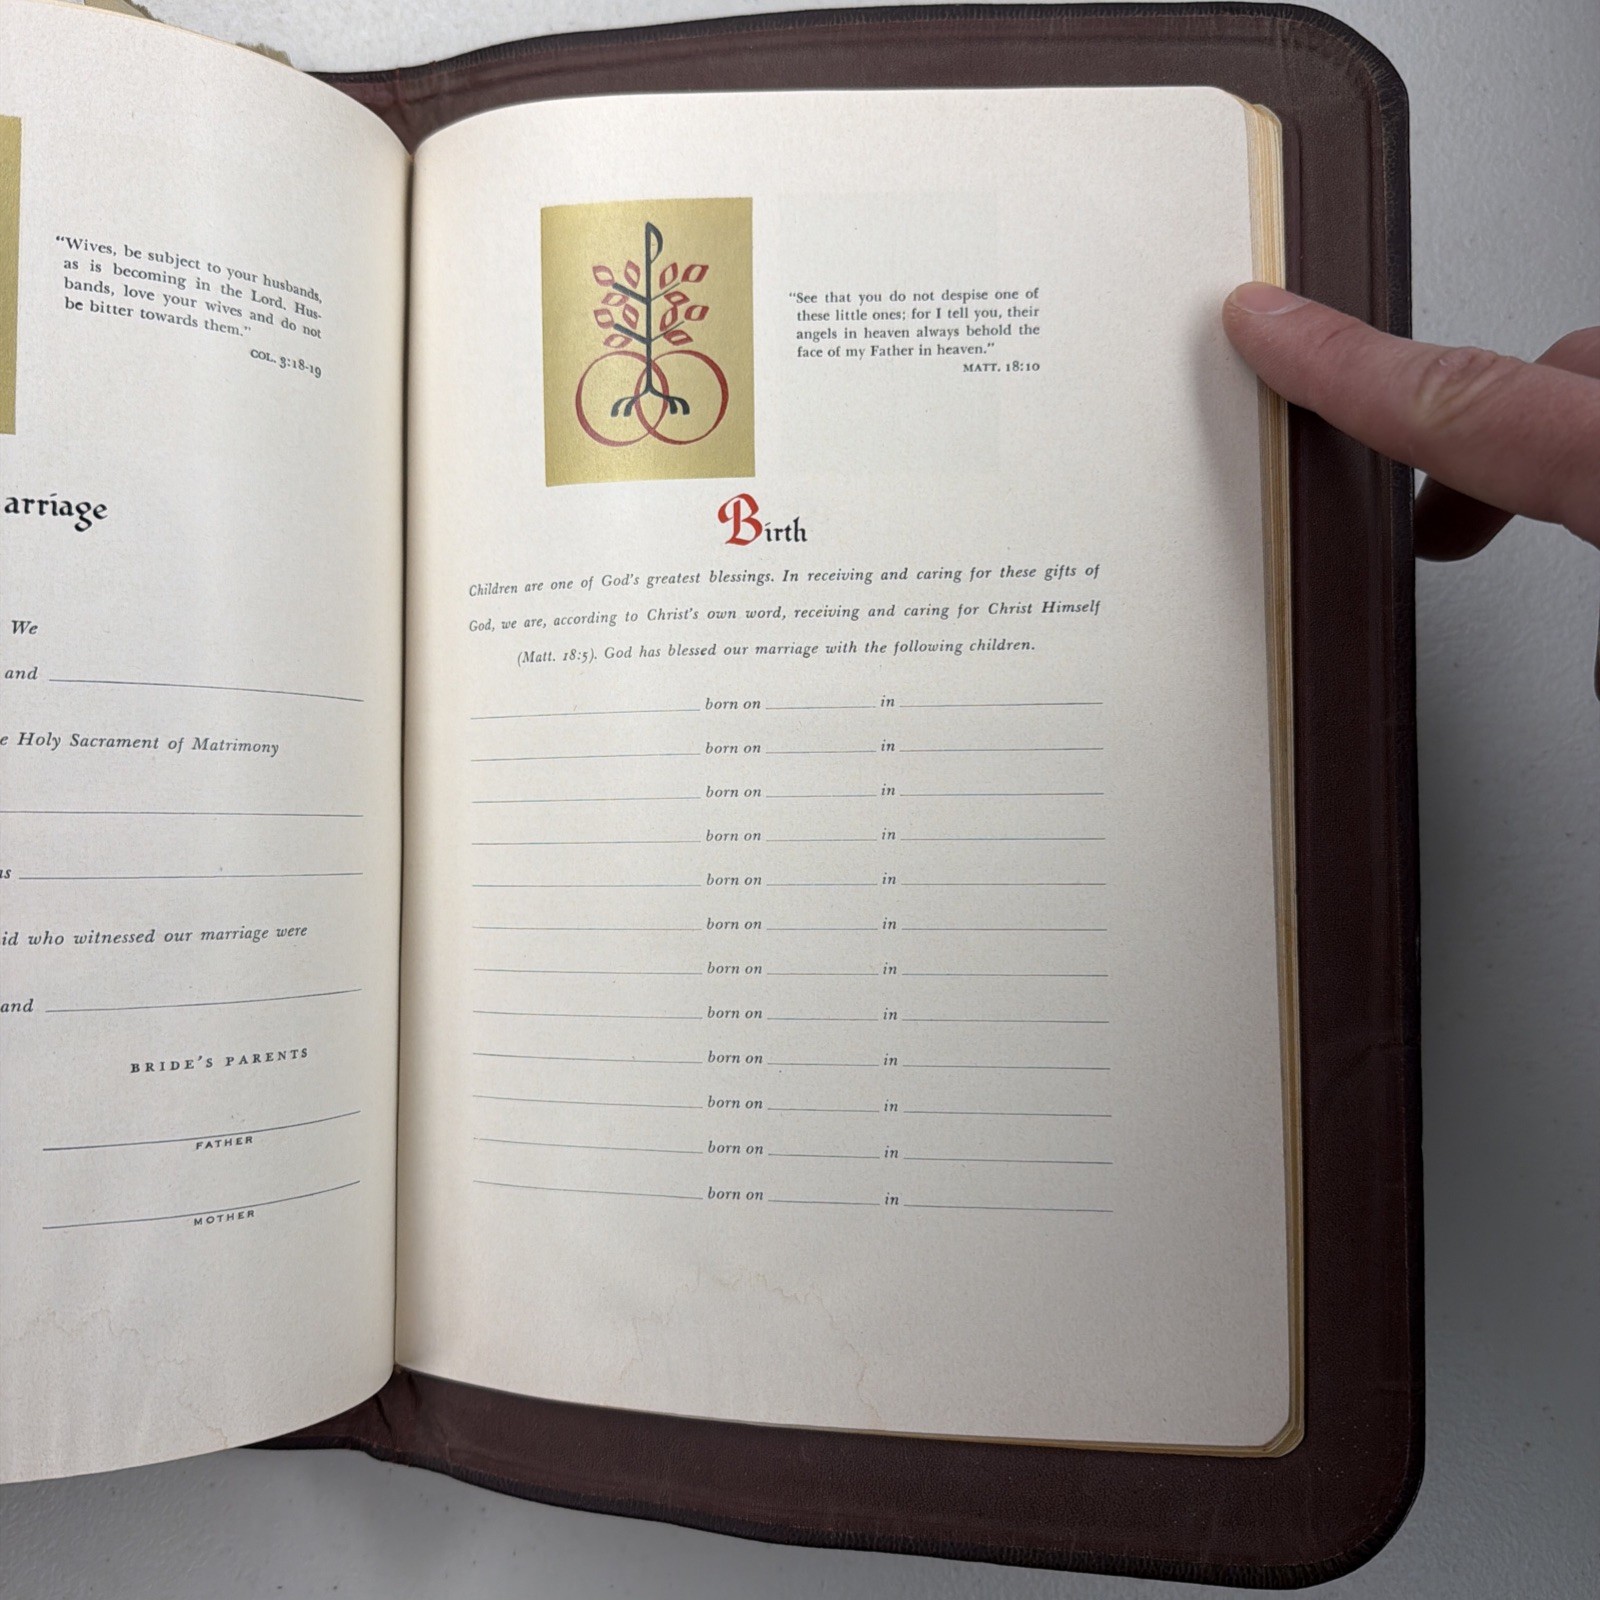 “Wives, be subject to your husbands,
as is becoming in the Lord. Hus-
bands, love your wives and do not
be bitter towards them.”
COL. 3:18-19
arriage
We
and
e Holy Sacrament of Matrimony
id who witnessed our marriage were
and
BRIDE'S PARENTS
FATHER
MOTHER
“See that you do not despise one of
these little ones; for I tell you, their
angels in heaven always behold the
face of my Father in heaven.”
MATT. 18:10
Birth
Children are one of God's greatest blessings. In receiving and caring for these gifts of
God, we are, according to Christ's own word, receiving and caring for Christ Himself
(Matt. 18:5). God has blessed our marriage with the following children.
born on in
born on in
born on in
born on in
born on in
born on in
born on in
born on in
born on in
born on in
born on in
born on in